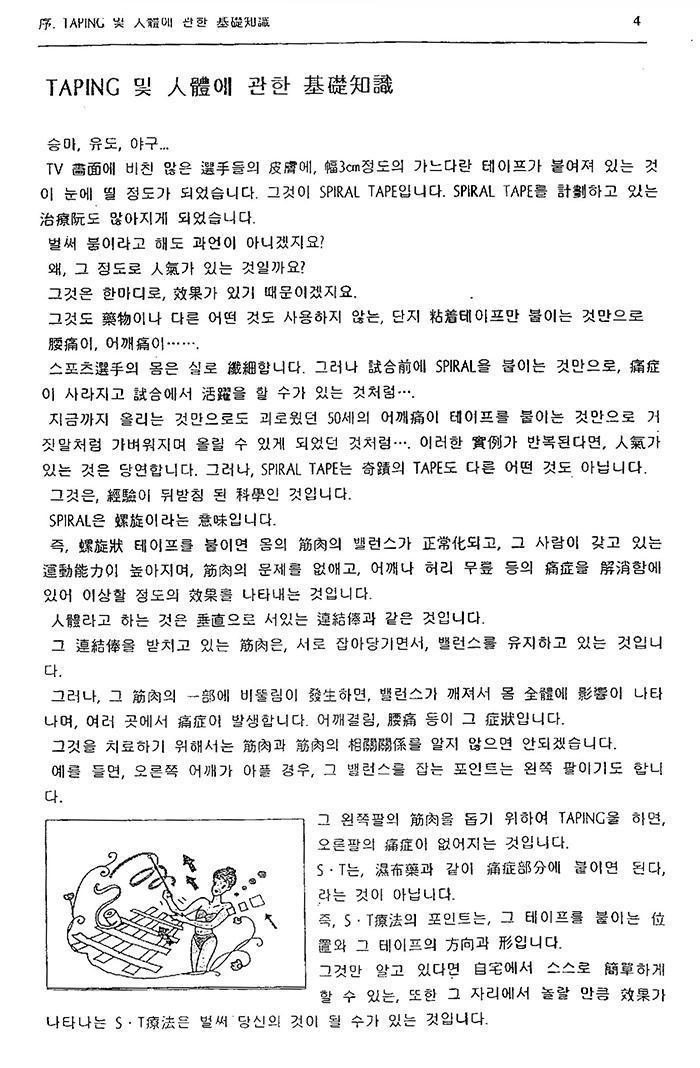 序. TAPING 및 人體에 관한 基礎知識 4
TAPING 및 人體에 관한 基礎知識
승마, 유도, 야구...
TV 畵面에 비친 많은 選手들의 皮膚에, 幅3cm정도의 가느다란 테이프가 붙여져 있는 것
이 눈에 띌 정도가 되었습니다. 그것이 SPIRAL TAPE입니다. SPIRAL TAPE를 計劃하고 있는
治療阮도 많아지게 되었습니다.
벌써 붐이라고 해도 과언이 아니겠지요?
왜, 그 정도로 人氣가 있는 것일까요?
그것은 한마디로, 效果가 있기 때문이겠지요.
그것도 藥物이나 다른 어떤 것도 사용하지 않는, 단지 粘着테이프만 붙이는 것만으로
腰痛이, 어깨痛이…….
스포츠選手의 몸은 실로 纖細합니다. 그러나 試合前에 SPIRAL을 붙이는 것만으로, 痛症
이 사라지고 試合에서 活躍을 할 수가 있는 것처럼….
지금까지 올리는 것만으로도 괴로웠던 50세의 어깨痛이 테이프를 붙이는 것만으로 거
짓말처럼 가벼워지며 올릴 수 있게 되었던 것처럼…. 이러한 實例가 반복된다면, 人氣가
있는 것은 당연합니다. 그러나, SPIRAL TAPE는 奇蹟의 TAPE도 다른 어떤 것도 아닙니다.
그것은, 經驗이 뒤받침 된 科學인 것입니다.
SPIRAL은 螺旋이라는 意味입니다.
즉, 螺旋狀 테이프를 붙이면 몸의 筋肉의 밸런스가 正常化되고, 그 사람이 갖고 있는
運動能力이 높아지며, 筋肉의 문제를 없애고, 어깨나 허리 무릎 등의 痛症을 解消함에
있어 이상할 정도의 效果를 나타내는 것입니다.
人體라고 하는 것은 垂直으로 서있는 連結俸과 같은 것입니다.
그 連結俸을 받치고 있는 筋肉은, 서로 잡아당기면서, 밸런스를 유지하고 있는 것입니
다.
그러나, 그 筋肉의 一部에 비뚤림이 發生하면, 밸런스가 깨져서 몸 全體에 影響이 나타
나며, 여러 곳에서 痛症이 발생합니다. 어깨결림, 腰痛 등이 그 症狀입니다.
그것을 치료하기 위해서는 筋肉과 筋肉의 相關關係를 알지 않으면 안되겠습니다.
예를 들면, 오른쪽 어깨가 아플 경우, 그 밸런스를 잡는 포인트는 왼쪽 팔이기도 합니
다.
그 왼쪽팔의 筋肉을 돕기 위하여 TAPING을 하면,
오른팔의 痛症이 없어지는 것입니다.
S·T는, 濕布藥과 같이 痛症部分에 붙이면 된다,
라는 것이 아닙니다.
즉, S·T療法의 포인트는, 그 테이프를 붙이는 位
置와 그 테이프의 方向과 形입니다.
그것만 알고 있다면 自宅에서 스스로 簡單하게
할 수 있는, 또한 그 자리에서 놀랄 만큼 效果가
나타나는 S·T療法은 벌써 당신의 것이 될 수가 있는 것입니다.